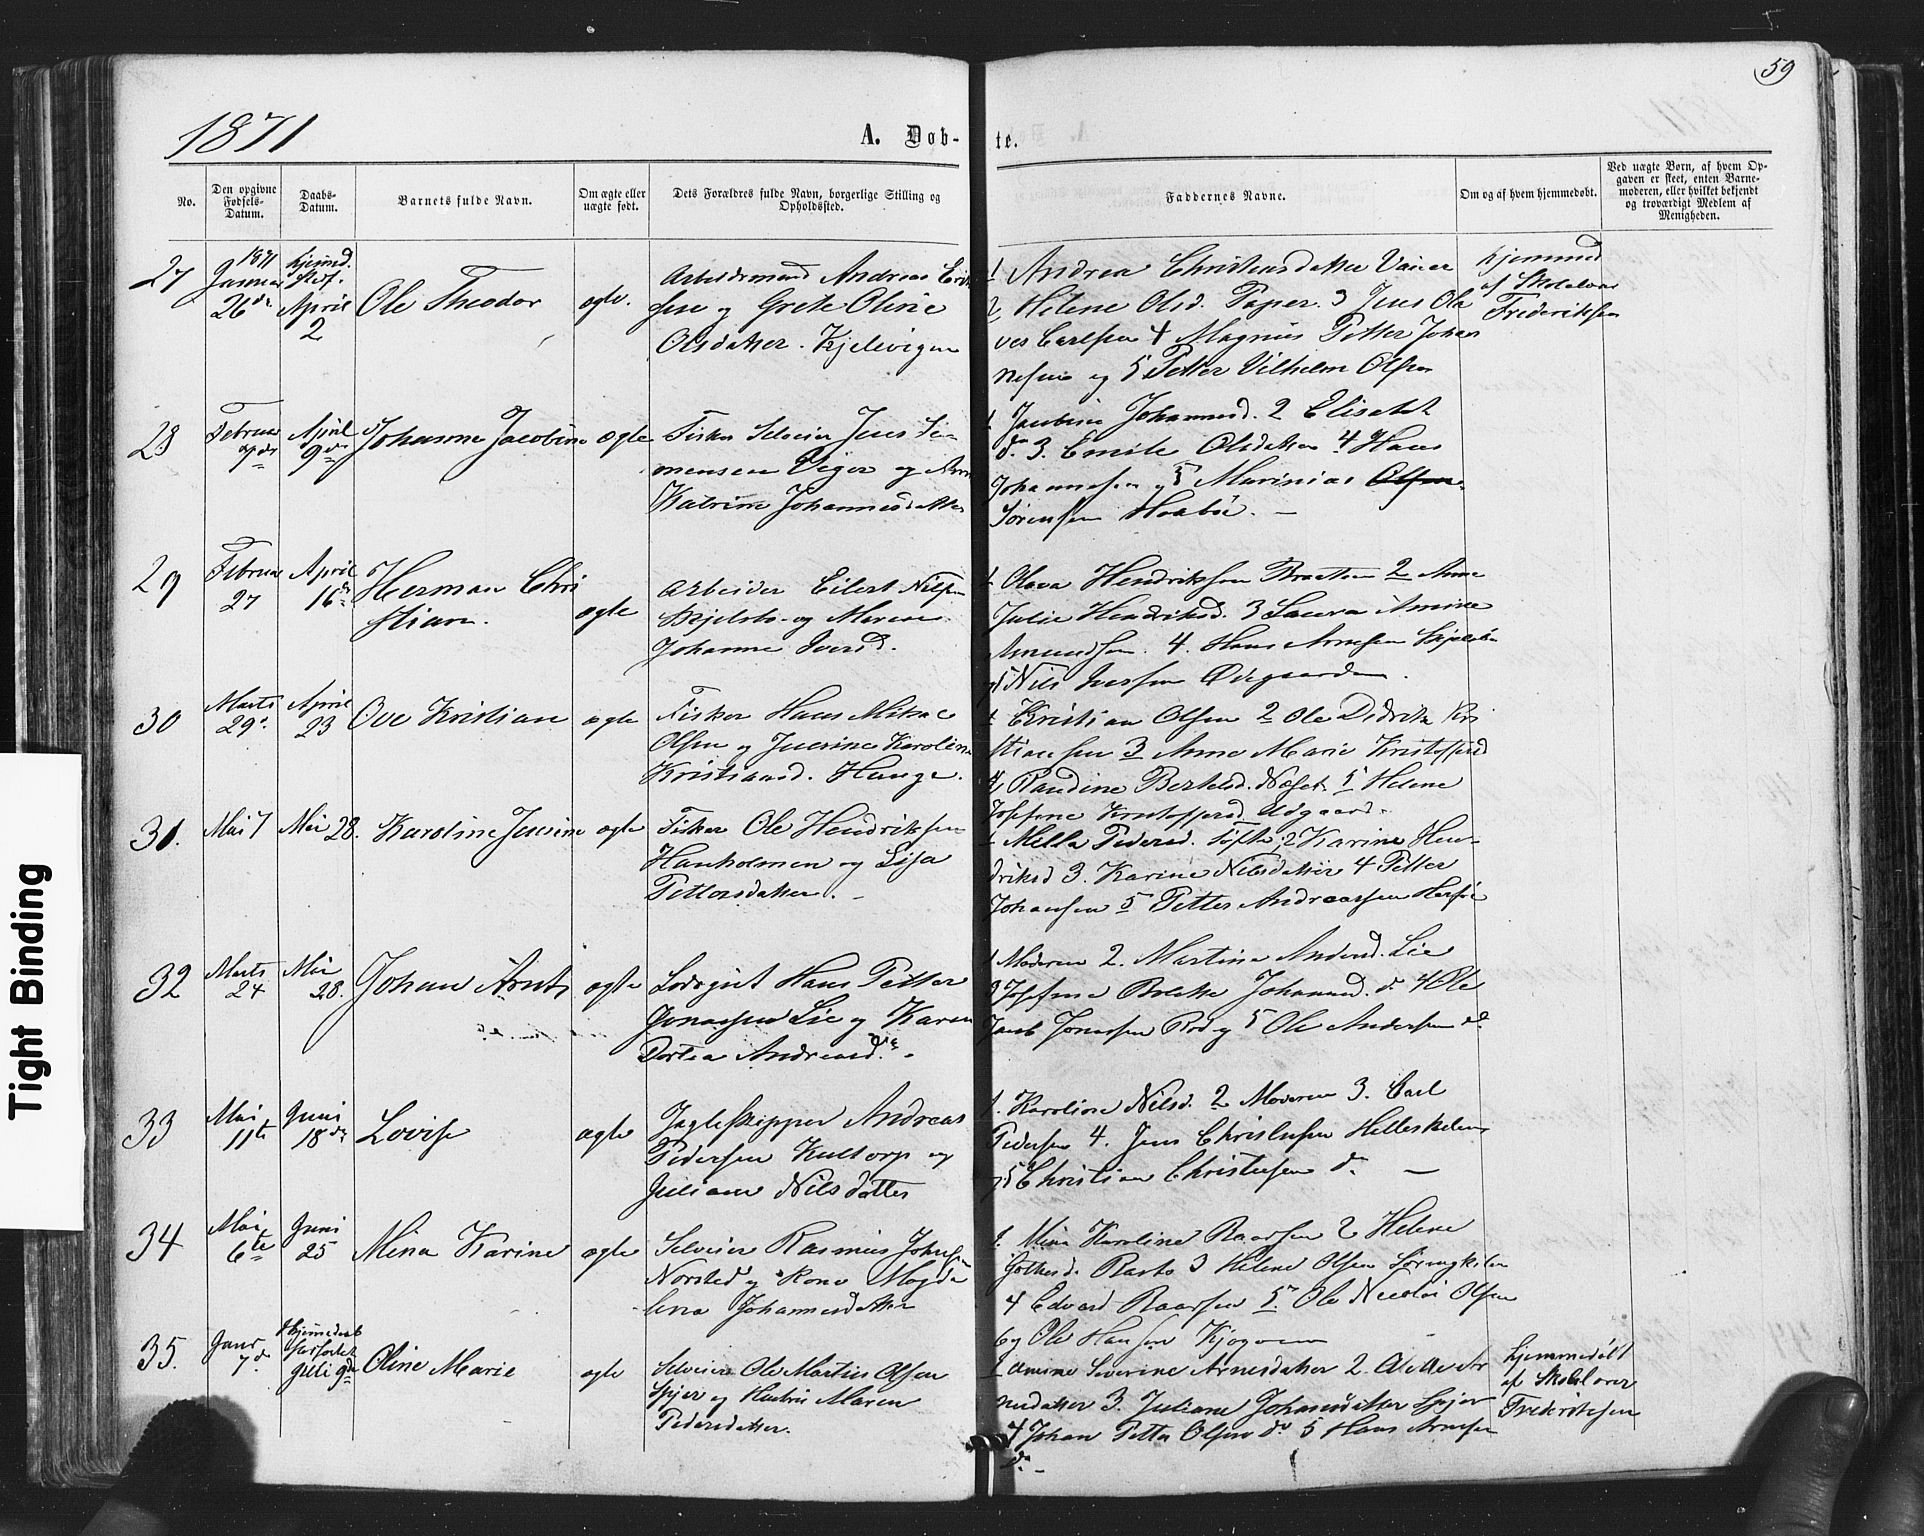 59
1871
A. Døb-
te.
No.
Den opgivne
Fødsels-
Datum.
Daabs-
Datum.
Barnets fulde Navn.
Om ægte eller
uægte født.
Dets Forældres fulde Navn, borgerlige Stilling og
Opholdssted.
Faddernes Navne.
Om og af hvem hjemmedøbt.
Ved uægte Børn, af hvem Op-
gaven er skeet, enten Barne-
moderen, eller hvilket bekjendt
og troværdigt Medlem af
Menigheden.
27
1871
Januar
26de
hjemmd.
Stdf.
April
2
Ole Theodor
ægte.
Arbeidsmand Andreas Erik
sen og Grete Olivie
Olsdatter. Kjelvigen
1 Andrea Christensdatter
2 Helene Olsd. Paper. 3 Jens Ola
ves Carlsen 4 Magnus Petter Johan
nesen og 5 Petter Vilhelm Olsen
hjemmed
af Skolelærer
Frederiksen
28
Februar
April
9de
Johanne Jacobine
ægte
Fisker Selveier Jens Si-
mensen Viger og Ann
Katrine Johannesdatter
1 Jacobine Johannesd. 2 Elisabet
do 3. Emile Olsdatter 4 Hans
Johannesen og 5 Marinius Olsen
Sørensen
29
Februar
27
April
16de
Herman Chri
stian.
ægte
Arbeider Eilert Nilsen
Skjelsbo og Maren
Johanne Iversd.
1 Olava Hendriksen Braaten 2 Anne
Julie Hendriksd. 3 Laura Amine
Amundsen. 4. Hans Arnesen
5 Nils Iversen Ødegaarden.
30
Marts
29
April
23
Ove Kristian
ægte
Fisker Hans Mikael
Olsen og Jverine Karoline
Kristiansd. Hauge.
1 Kristian Olsen 2 Ole Didrik Kri
stiansen 3 Anne Marie Kristoffersd
4 Randine Bertelsd. Næset 5 Helene
Josefine Kristoffersd Udgaard.
31.
Mai 7
Mai 28.
Karoline Jverine
ægte
Fisker Ole Hendriksen
Hanholmen og Lisa
Pettersdatter. -
1 Milla Pedersd. Tofte, 2 Karine Hen-
driksd 3. Karine Nilsdatter 4 Petter
Johansen 5 Petter Andreassen
32
Marts
24
Mai
28.
Johan Arnt
ægte
Lodsgut Hans Petter
Jonassen Lie og Karen
Dortea Andreasd.
1 Moderen 2. Martine Andersd. Lie
3 Josefine Bolette Johannesd. do 4 Ole
Jacob Jonassen Rød og 5 Ole Andersen do
33
Mai
11te
Juni
18de
Lovise
ægte
Jagteskipper Andreas
Pedersen Kultorp og
Juliane Nilsdatter
1. Karoline Nilsd. 2 Moderen 3. Carl
Pedersen 4. Jens Christensen Helleskilen
5 Christian Christensen do. -
34
Mai
6te
Juni
25
Mina Karine
ægte
Selveier Rasmus Johnsen
Norsted og Kone Magda
lena Johannesdatter
1. Mina Karoline Raarsen 2 Helene
3 Helene Olsen Løvingkilen
4 Edvard Raarsen 5. Ole Nicolai Olsen
6 og Ole Hansen
35.
Juni
7de
Hjemmedøbt
Juli 9de
Oline Marie
ægte
Selveier Ole Martius Olsen
Spjær og Hustru Maren
Pedersdatter.
1 Amine Severine Arnesdatter 2.
nesdatter 3. Juliane Johannesdatter Spjær
4 Johan Petter Olsen do 5 Hans Arnesen
do -
hjemmedøbt
af Skolelærer
Frederiksen
Tight Binding